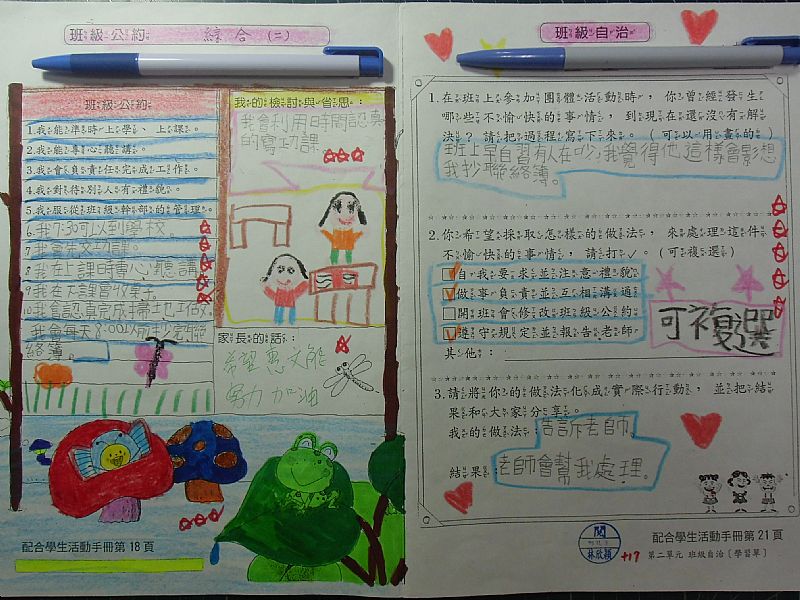 班級公約 綜合(二)
班級公約
1.我能準時上學、上課。
2.我能專心聽講。
3.我會負責任完成工作。
4.我對待別人有禮貌。
5.我服從班級幹部的管理。
6.我7:30可以到學校。
7我會先交功課。
8我在上課時專心聽講
9我在下課會收桌子。
10我會認真完成掃地工做。
我會每天8:00以前抄完聯
絡簿。
我的檢討與省思:
我會利用時間認真
的寫功課
家長的話:
希望惠文能
努力加油
配合學生活動手冊第18頁
班級自治
1.在班上參加團體活動時,你曾經發生
哪些不愉快的事情,到現在還沒有解
決?請把過程寫下來。(可以用畫的)
班上早自習有人在吵,我覺得他這樣會影想
我抄聯絡簿。
2.你希望採取怎樣的做法,來處理這件
不愉快的事情,請打✓。(可複選)
☑自我要求並注意禮貌
☑做事負責並互相溝通
□開班會修改班級公約
☑遵守規定並報告老師
其他:
可複選
3.請將你的做法化成實際行動,並把結
果和大家分享。
我的做法:告訴老師。
結果:老師會幫我處理。
閱
林欣穎
+17
配合學生活動手冊第21頁
第二單元 班級自治〔學習單〕